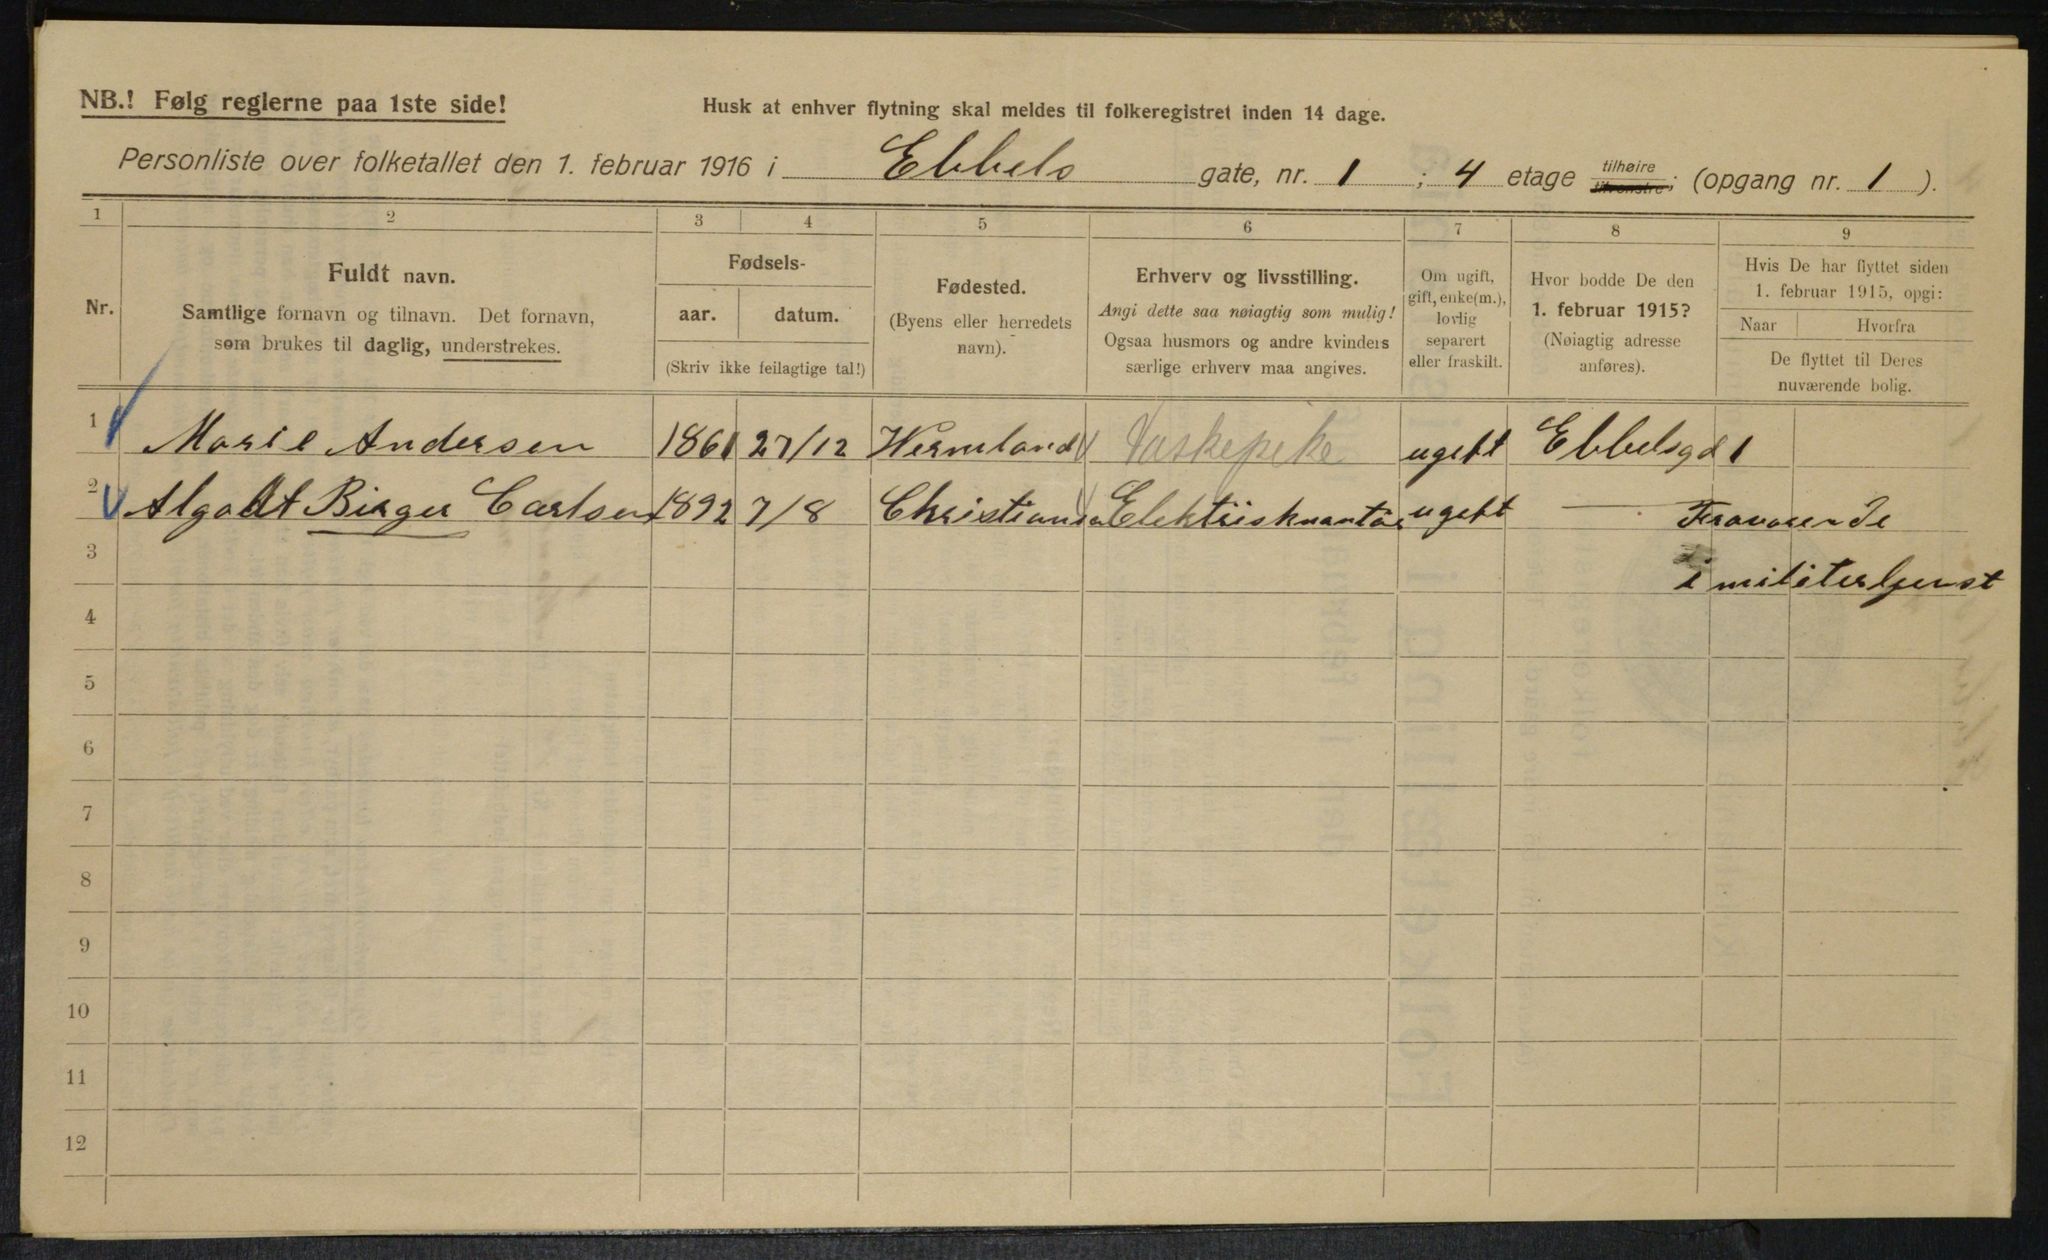 NB.! Følg reglerne paa 1ste side!
Husk at enhver flytning skal meldes til folkeregistret inden 14 dage.
Personliste over folketallet den 1. februar 1916 i Ebbels gate, nr. 1 ; 4 etage tilhøire tilvenstre; (opgang nr. 1 ).
1 2 3 4 5 6 7 8 9
Nr.
Fuldt navn.
Samtlige fornavn og tilnavn. Det fornavn,
som brukes til daglig, understrekes.
Fødsels-
aar. datum.
(Skriv ikke feilagtige tal!)
Fødested.
(Byens eller herredets
navn).
Erhverv og livsstilling.
Angi dette saa nøiagtig som mulig!
Ogsaa husmors og andre kvinders
særlige erhverv maa angives.
Om ugift,
gift, enke(m.),
lovlig
separert
eller fraskilt.
Hvor bodde De den
1. februar 1915?
(Nøiagtig adresse
anføres).
Hvis De har flyttet siden
1. februar 1915, opgi:
Naar Hvorfra
De flyttet til Deres
nuværende bolig.
1 Marie Andersen 1861 27/12 Wermland Vaskepike ugift Ebbelsgd 1
2 Algodt Birger Carlsen 1892 7/8 Christiania Elektriskmontør ugift — Fraværende
3 i militertjenst
4
5
6
7
8
9
10
11
12